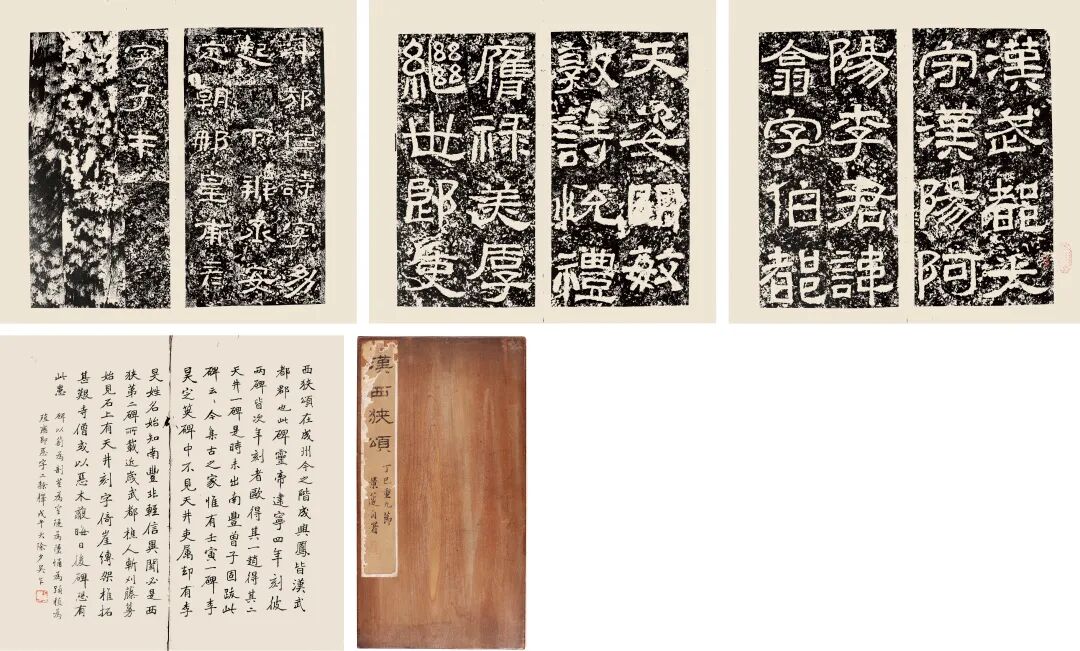 漢武都太
守漢陽阿
陽李君諱
翕字伯都
天姿明敏
敦詩悅禮
膺祿美厚
繼世郎吏
邡任詩字幼
起下辨丞安
定朝那皇甫彥
字子才
西狹頌在成州今之階成興鳳皆漢武
都郡也此碑靈帝建寧四年刻彼
兩碑皆次年刻者歐得其一趙得其二
天井一碑是時未出南豐曾子固跋此
碑云今集古之家惟有壬寅一碑李
昊定筴碑中不見天井吏属却有李
昊姓名始知南豐非輕信異聞必是西
狹第二碑所載近歲武都樵人斬刈藤蔓
始見石上有天井刻字倚崖縛架椎拓
甚艱寺僧或以惡木蔽晦日後碑恐有
此患 碑以
漢西狹頌
丁巳重九